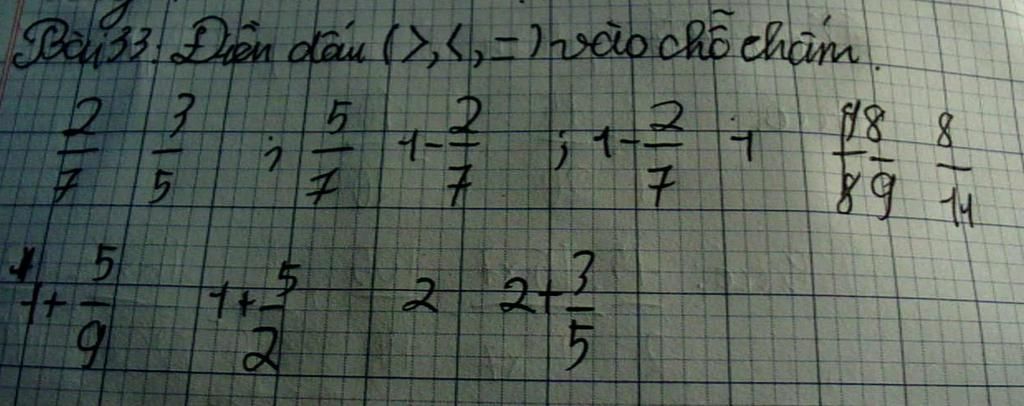 Bài 33: Điền dấu (>, <, =) vào chỗ chấm.
2/7 3/5 ; 5/7 1 - 2/7 ; 1 - 2/7 1 8/9 8/11
1 + 5/9 1 + 5/2 2 2 + 3/5